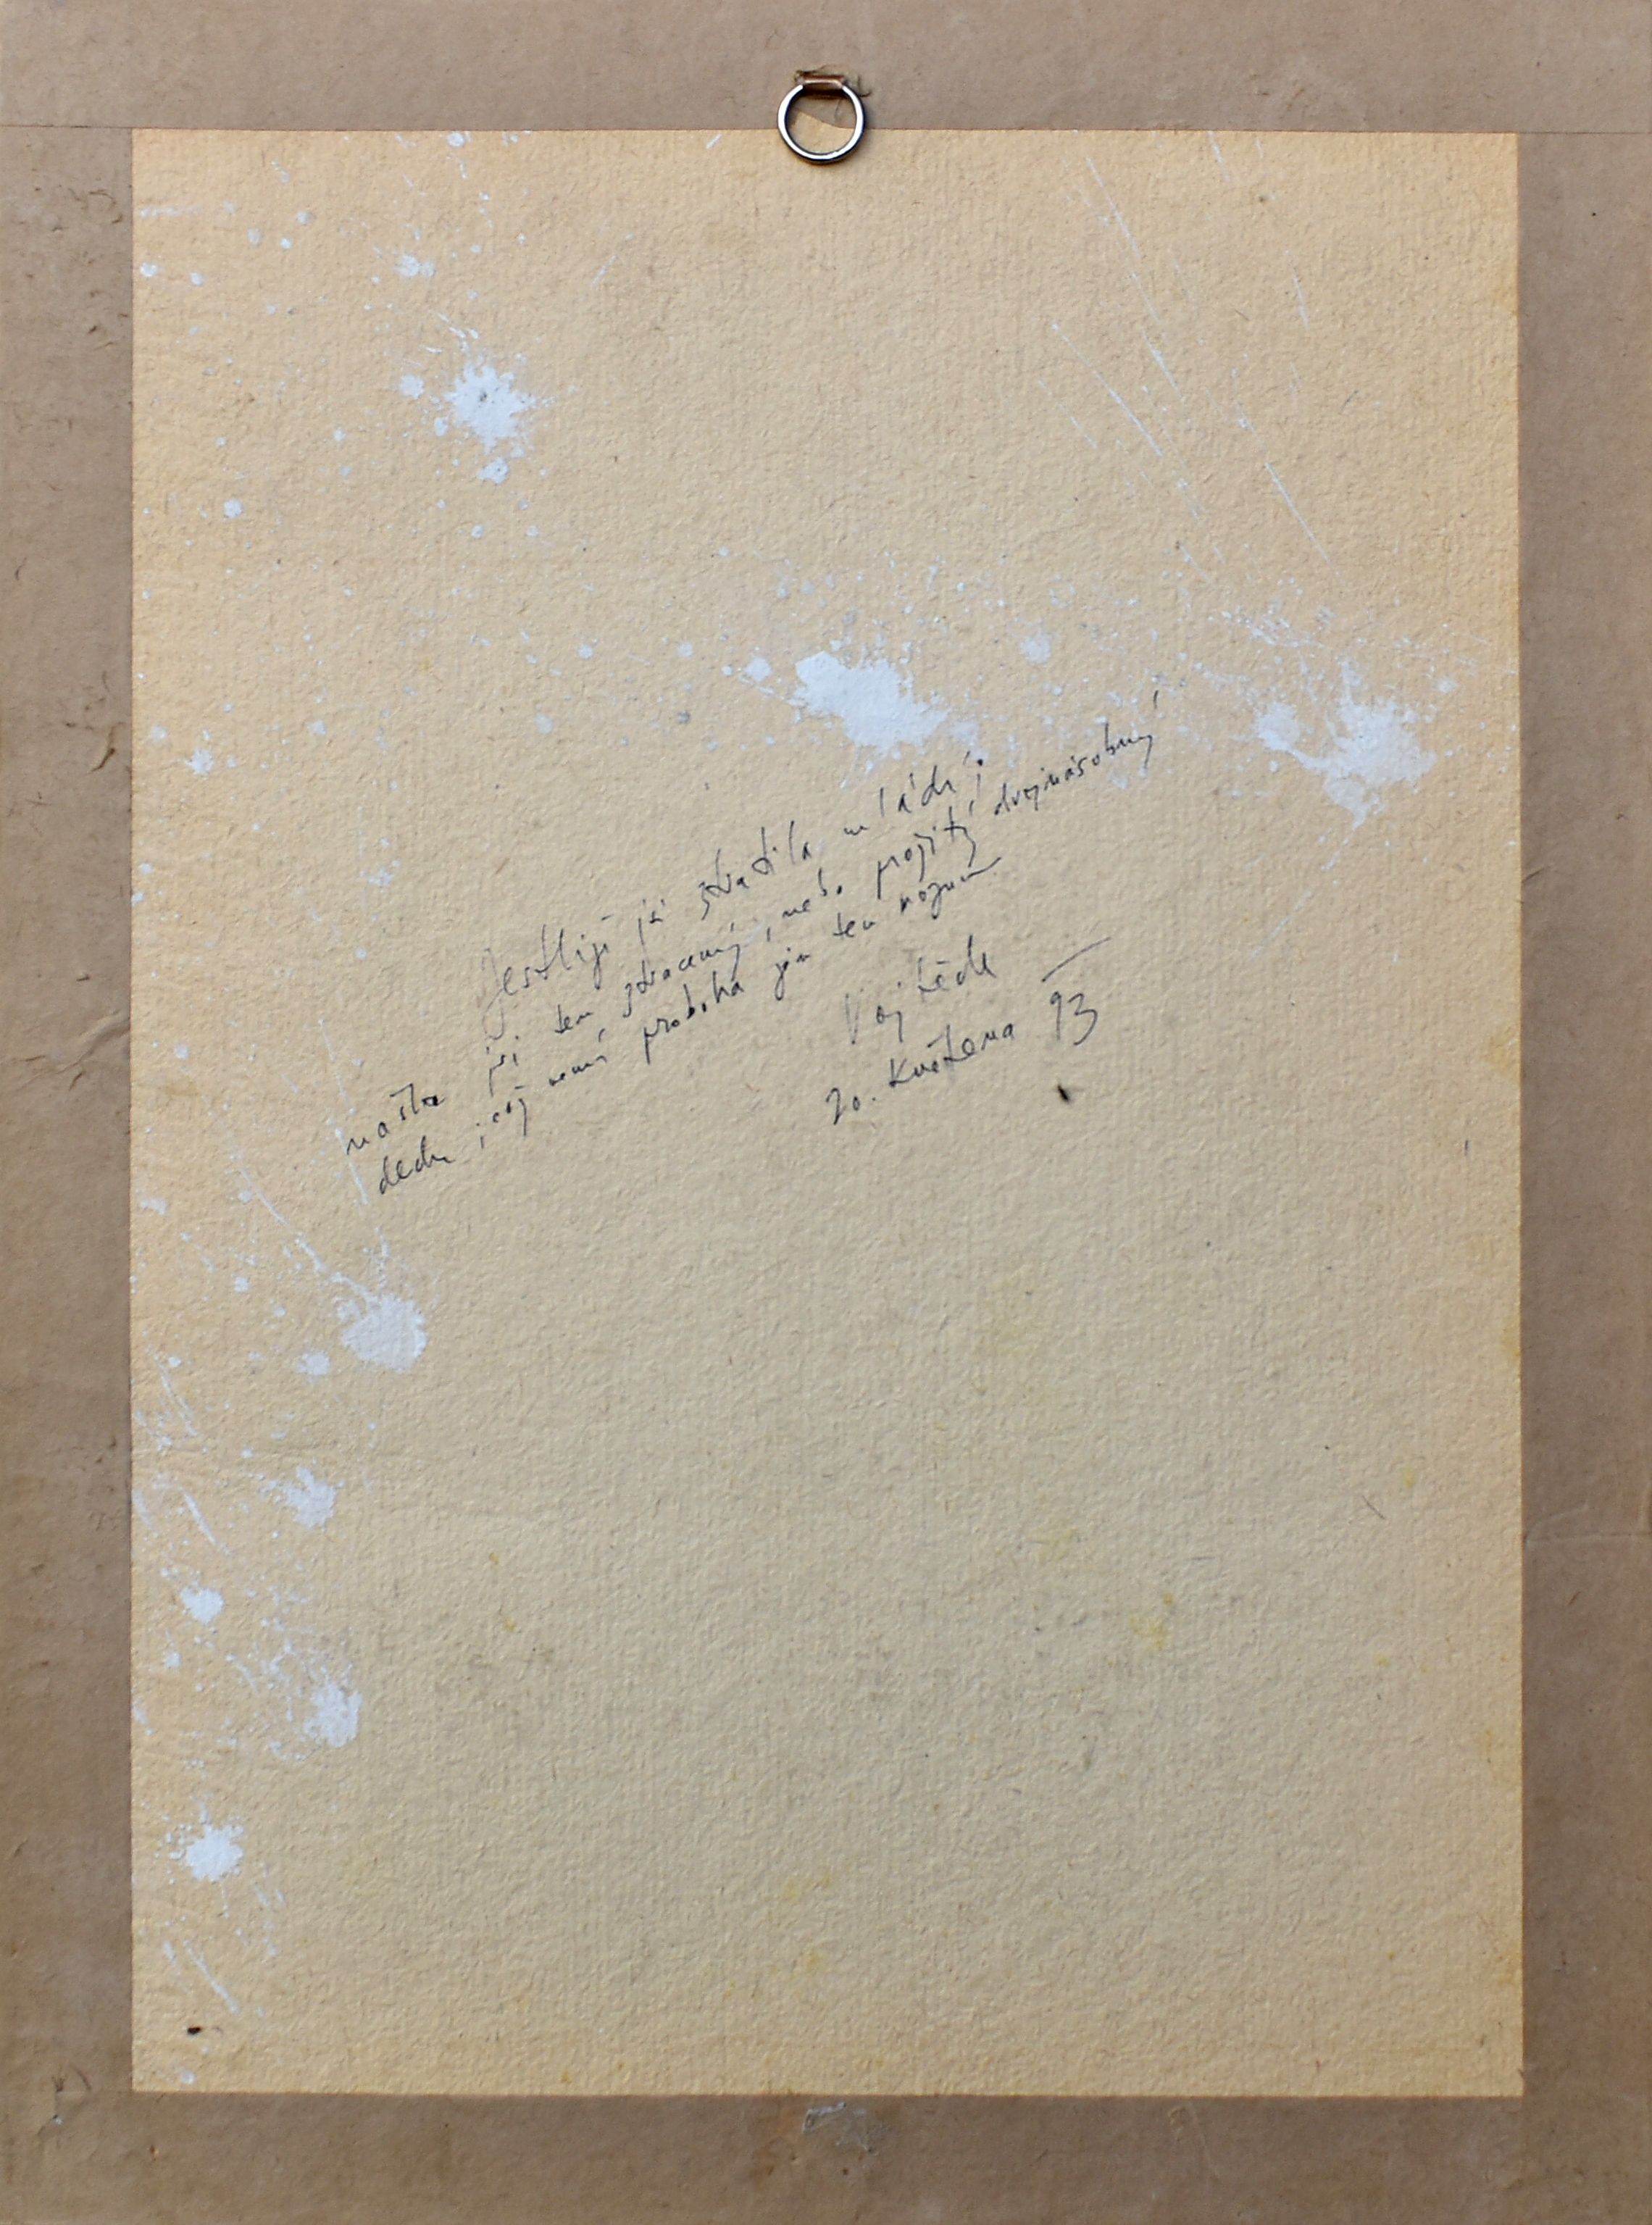 Jestliže jsi ztratila mládí;
našla jsi ten ztracený, nebo prožitý dvojnásobný
dech; což není probůha jen ten rozum
Vojtěch
20. Května 93